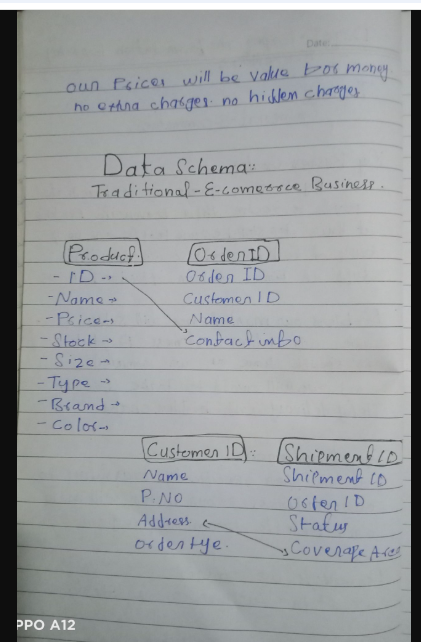 Date:
our Prices will be value for money
no extra charges. no hidden charges
Data Schema::
Traditional - E-comerrce Business.
Product.
- ID →
- Name →
- Price →
- Stock →
- Size →
- Type →
- Brand →
- Color →
Order ID
Order ID
Customer ID
Name
Contact info
Customer ID :
Name
P.NO
Address
order tye.
Shipment ID
Shipment ID
Order ID
Status
Coverage Area
PPO A12